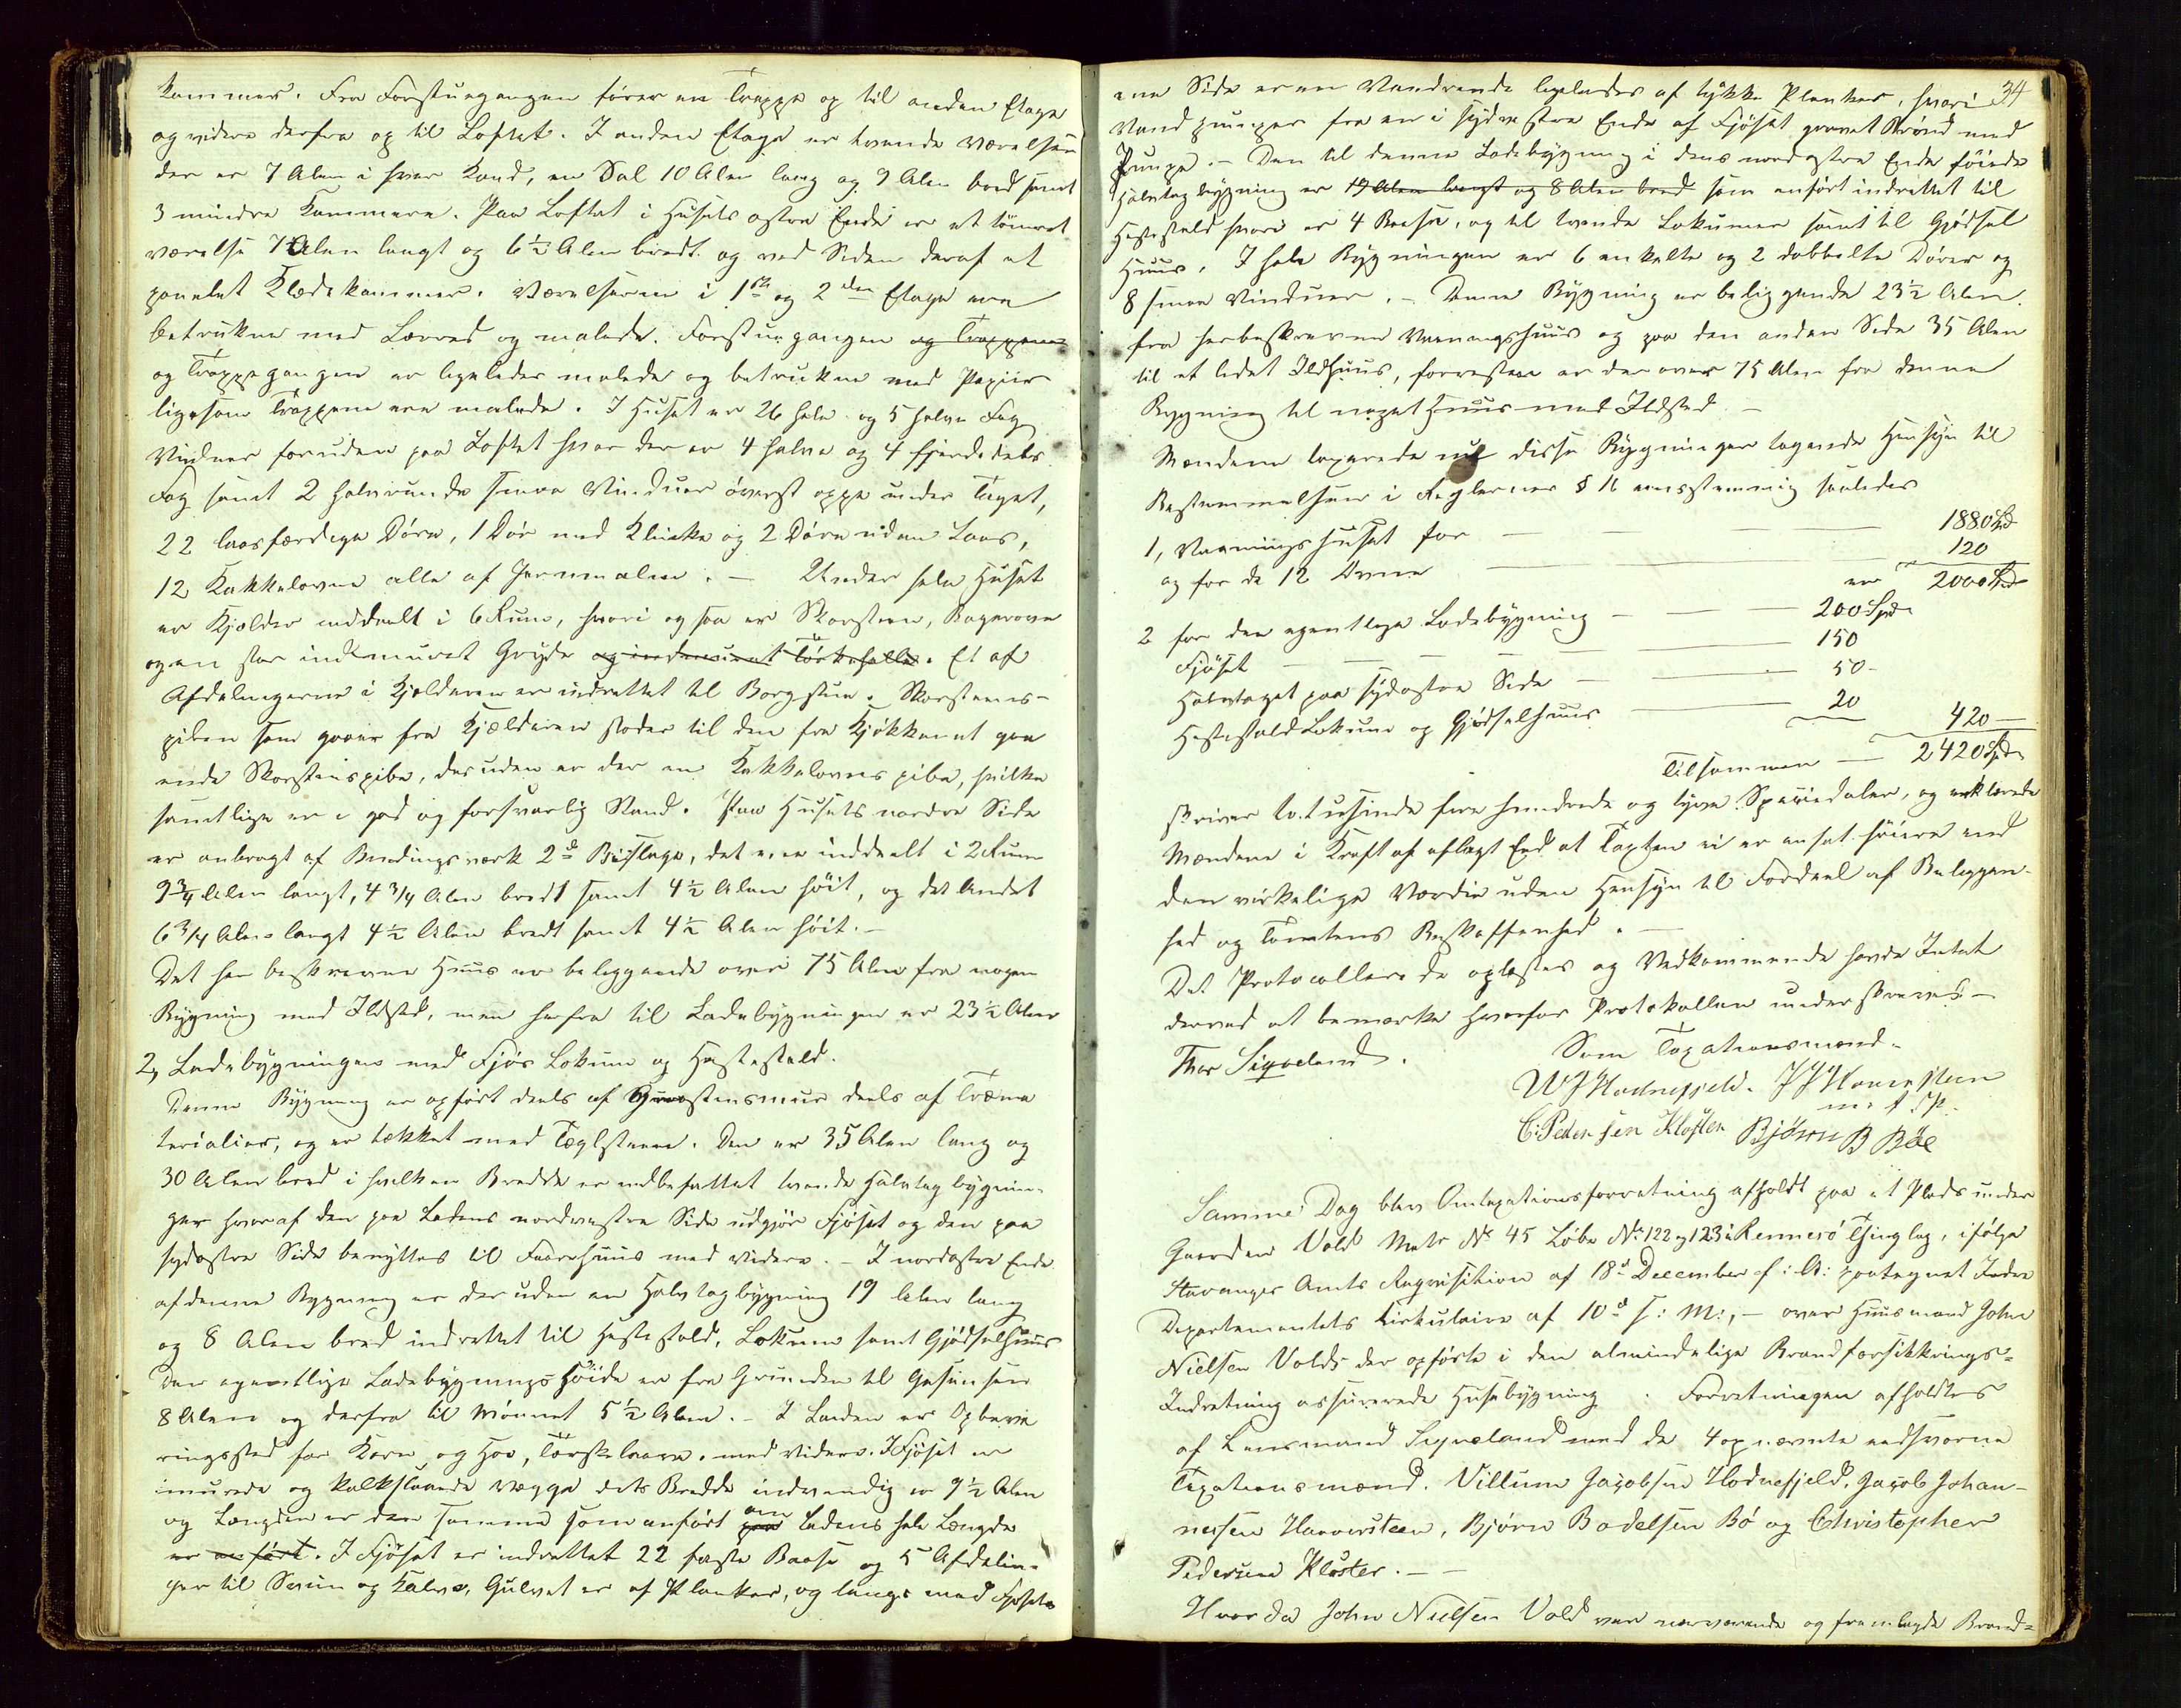 Kammer. Fra Forstuegangen fører en Trappe op til anden Etage
og videre derfra op til Loftet. I anden Etage er tvende Værelser
der er 7 Alen i hver Kand, en Sal 10 Alen lang og 9 Alen bred samt
3 mindre Kammere. Paa Loftet i Husets østre Ende er et tømret
værelse 7 Alen langt og 6½ Alen bredt og ved Siden deraf et
panelet Klædekammer. Værelserne i 1ste og 2den Etage ere
betrukne med Lærred og malede. Forstuegangen og Trapperne
og Trappegangen er ligeledes malede og betrukne med Papiir
ligesom Trapperne ere malede. I Huset er 26 hele og 5 halve Fag
Vinduer foruden paa Loftet hvor der er 4 halve og 4 fjerdedels
Fag samt 2 halvrunde smaa Vinduer øverst oppe under Taget,
22 laasfærdige Døre, 1 Dør med Klinke og 2 Døre uden Laas,
12 Kakkelovne alle af Jernmalm. – Under hele Huset
er Kjælder inddeelt i 6 Rum, hvori ogsaa er Skorsteen, Bagerovn
og en stor indmuret Gryde og indmuret Tørkehelle. Et af
Afdelingerne i Kjælderen er indrettet til Borgstue. Skorsteens-
piben som gaaer fra Kjælderen støder til den fra Kjøkkenet gaa
ende Skorstenspibe, desuden er der en Kakkelovnspibe, hvilke
samtlige er i god og forsvarlig Stand. Paa Husets nordre Side
er anbragt af Bindingsværk 2de Bislage, det ene inddeelt i 2 Rum
9¾ Alen langt, 4¾ Alen bredt samt 4½ Alen høit, og det Andet
6¾ Alen langt 4½ Alen bredt samt 4½ Alen høit. –
Det her beskrevne Huus er beliggende over 75 Alen fra nogen
Bygning med Ildsted, men herfra til Ladebygningen er 23½ Alen
2, Ladebygningen med Fjøs Lokum og Hestestald.
Denne Bygning er opført deels af Graasteensmuur deels af Træma
terialier, og er tækket med Tæglsteen. Den er 35 Alen lang og
30 Alen bred i hvilken Bredde er indbefattet tvende Halvtagbygnin-
ger hvoraf den paa Ladens nordvestre Side udgjør Fjøset og den paa
sydøstre Side benyttes til Faarehuus med videre. – I nordøstre Ende
af denne Bygning er der uden en Halvtagbygning 19 Alen lang
og 8 Alen bred indrettet til Hestestald, Lokum samt Gjødselhuus
Den egentlige Ladebygnings Høide er fra Grunden til Gesimsen
8 Alen og derfra til Mønnet 5½ Alen. – I Laden er Opbeva
ringssted for Korn og Hø, Tærskelaave med videre. I Fjøset er
murede og kalkslaaede vægge dets Bredde indvendig er 9½ Alen
og Længden er den samme som anført om Ladens hele Længde
er anført. I Fjøset er indrettet 22 faste Baase og 5 Afdelin-
ger til Sviin og Kalve, Gulvet er af Planker, og langs med Fjøsets
34
ene Side er en Vandrende ligeledes af tykke Planker, hvori
Vand pumpes fra en i sydvestre Ende af Fjøset gravet Brønd med
Pumpe. – Den til denne Ladebygning i dens nordøstre Ende føiede
Halvtagbygning er 19 Alen langt og 8 Alen bred som anført indrettet til
Hestestald hvori er 4 Baase, og til tvende Lokumer samt til Gjødsel
Huus. I hele Bygningen er 6 enkelte og 2 dobbelte Døre og
8 smaa Vinduer. – Denne Bygning er beliggende 23½ Alen
fra herbeskrevne Vaaningshuus og paa den anden Side 35 Alen
til et lidet Ildhuus, forresten er der over 75 Alen fra denne
Bygning til noget Huus med Ildsted. –
Mændene taxerede nu disse Bygninger tagende Hensyn til
Bestemmelserne i Reglernes § 16 eensstemmig saaledes
1, Vaaningshuset for — — 1880 Spd
og for de 12 Ovne — — 120
er 2000 Spd
2 for den egentlige Ladebygning — — 200 Spd
Fjøset — — 150
Halvtaget paa sydøstre Side — — 50 –
Hestestald Lokum og Gjødselhuus — 20
420 —
Tilsammen — 2420 Spd
skriver totusinde fire hundrede og tyve Speciedaler, og erklærede
Mændene i Kraft af aflagt Eed at Taxten ei er ansat høiere end
den virkelige Værdie uden Hensyn til Fordeel af Beliggen-
hed og Tomtens Beskaffenhed. –
Det Protocollerede oplæstes og Vedkommende havde Intet
derved at bemærke hvorfor Protokollen underskreves –
Thor Siqveland.
Som Taxationsmænd.
W J Hodnefjeld. J J Haaversteen
m. f. P.
C: Pedersen Kloster Bjørn B Bøe
Samme Dag blev Omtaxationsforretning afholdt paa et Plads under
Gaarden Vold Matr No 45 Løbe No 122 og 123 i Rennesø Thinglag, ifølge
Stavanger Amts Reqvisition af 18de December f: A: paategnet Indre
Departementets Cirkulaire af 10de s: M:, – over Huusmand John
Nielsen Volds der opførte i den almindelige Brandforsikkrings-
Indretning assurerede Husebygning. Forretningen afholdtes
af Lensmand Siqveland med de 4 opnævnte eedsvorne
Taxationsmænd. Villum Jacobsen Hodnefjeld, Jacob Johan-
nesen Haaversteen, Bjørn Bodelsen Bø og Christopher
Pedersen Kloster. – –
Hvor da John Nielsen Vold var nærværende og fremlagde Brand-